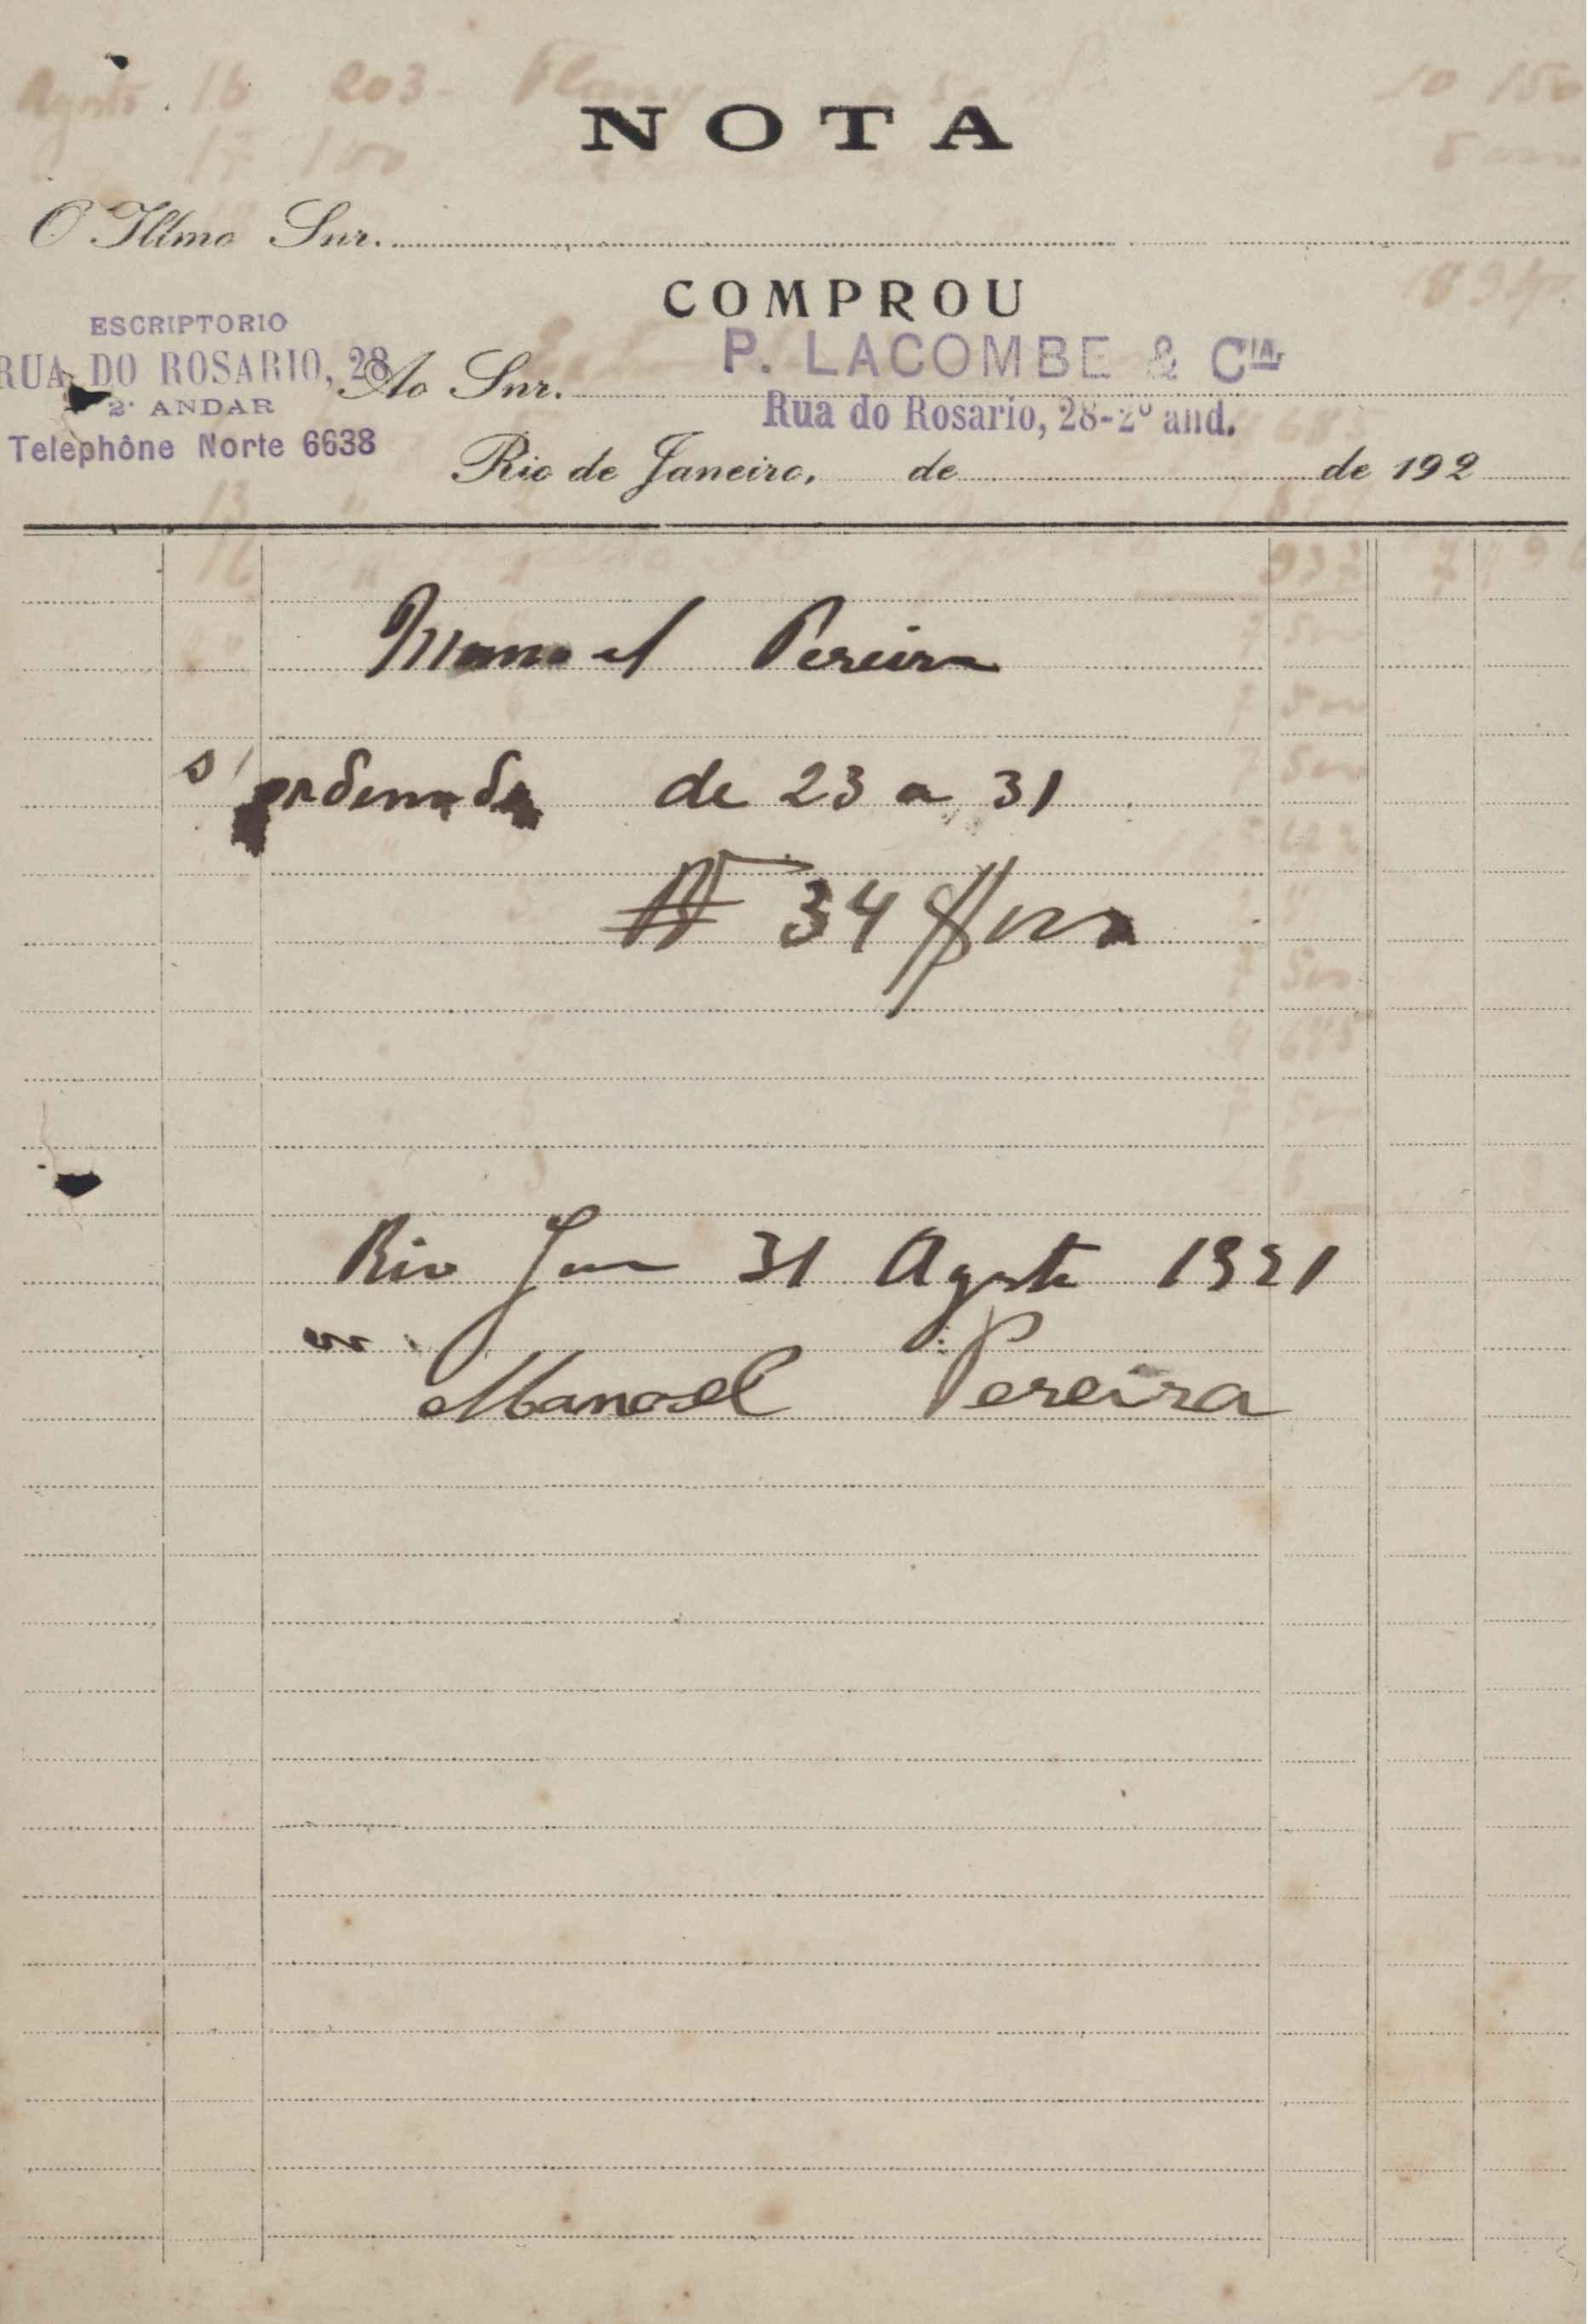 NOTA
O Illmo Snr.
COMPROU
ESCRIPTORIO
RUA DO ROSARIO, 28
2º ANDAR
Telephône Norte 6638
Ao Snr. P. LACOMBE & Cia
Rua do Rosario, 28-2º and.
Rio de Janeiro, de de 192
Manoel Pereira
s/ ordenado de 23 a 31
34$000
Rio Jan 31 Agosto 1921
Manoel Pereira